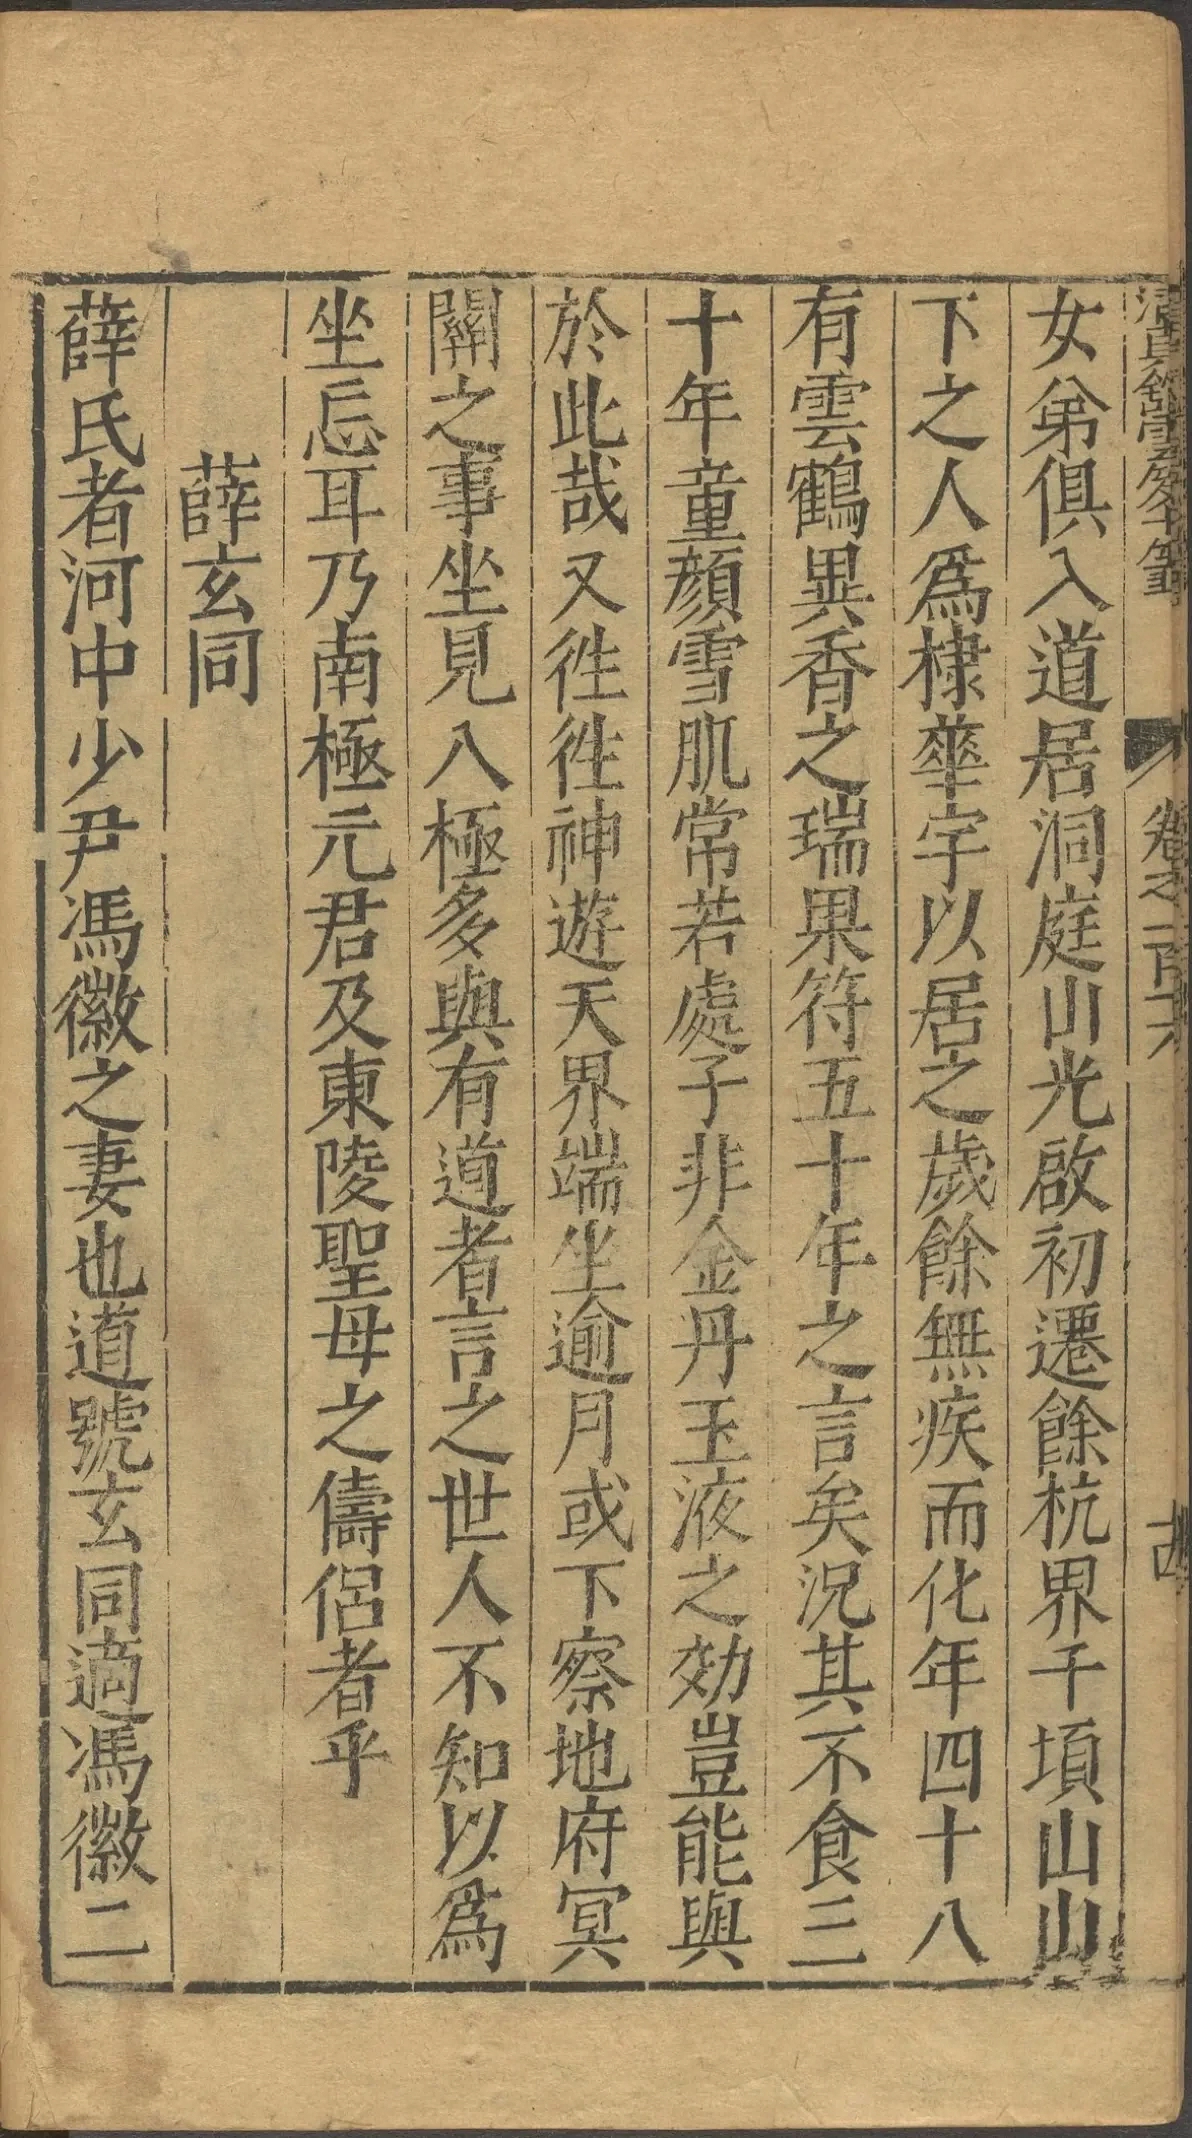 清真館雲笈七籤
卷之一百十六
十四
女弟俱入道居洞庭山光啟初遷餘杭界千頃山山
下之人爲棣華宇以居之歲餘無疾而化年四十八
有雲鶴異香之瑞果符五十年之言矣況其不食三
十年童顏雪肌常若處子非金丹玉液之効豈能與
於此哉又徃徃神遊天界端坐逾月或下察地府冥
關之事坐見八極多與有道者言之世人不知以爲
坐忘耳乃南極元君及東陵聖母之儔侶者乎
薛玄同
薛氏者河中少尹馮徽之妻也道號玄同適馮徽二